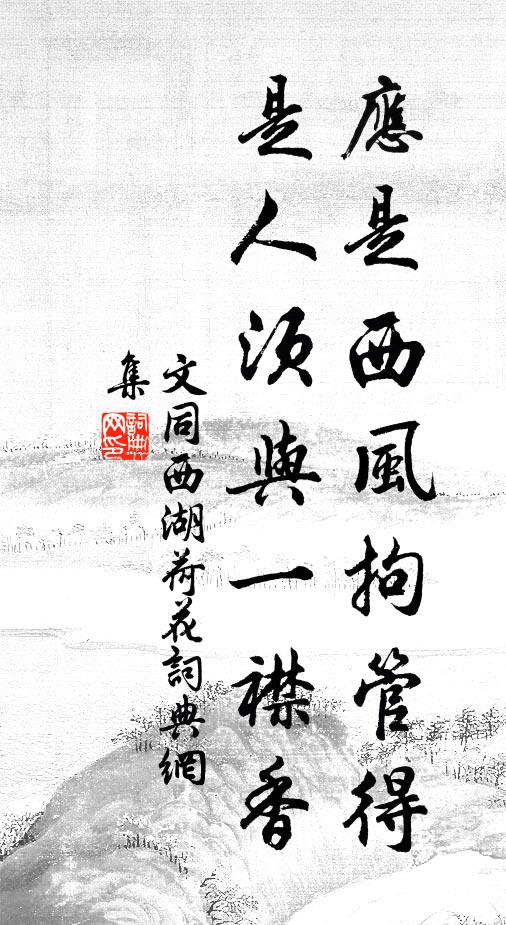 應是西風拘管得
是人須與一襟香
文同西湖荷花詞典網
集
詞典
网印